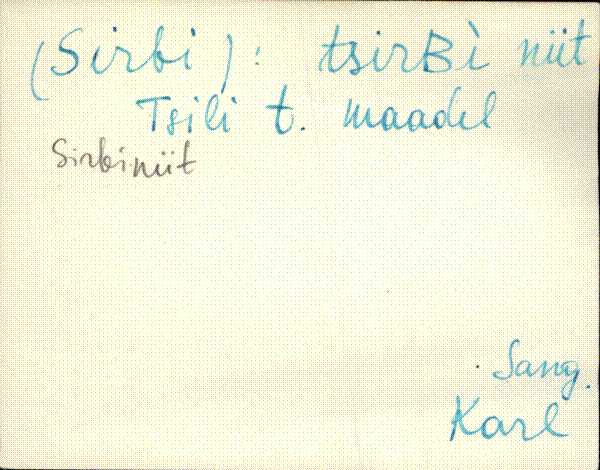 (Sirbi): tsirBì niit
Tsili t. maadel
Sirbiniit
Sang.
Karl